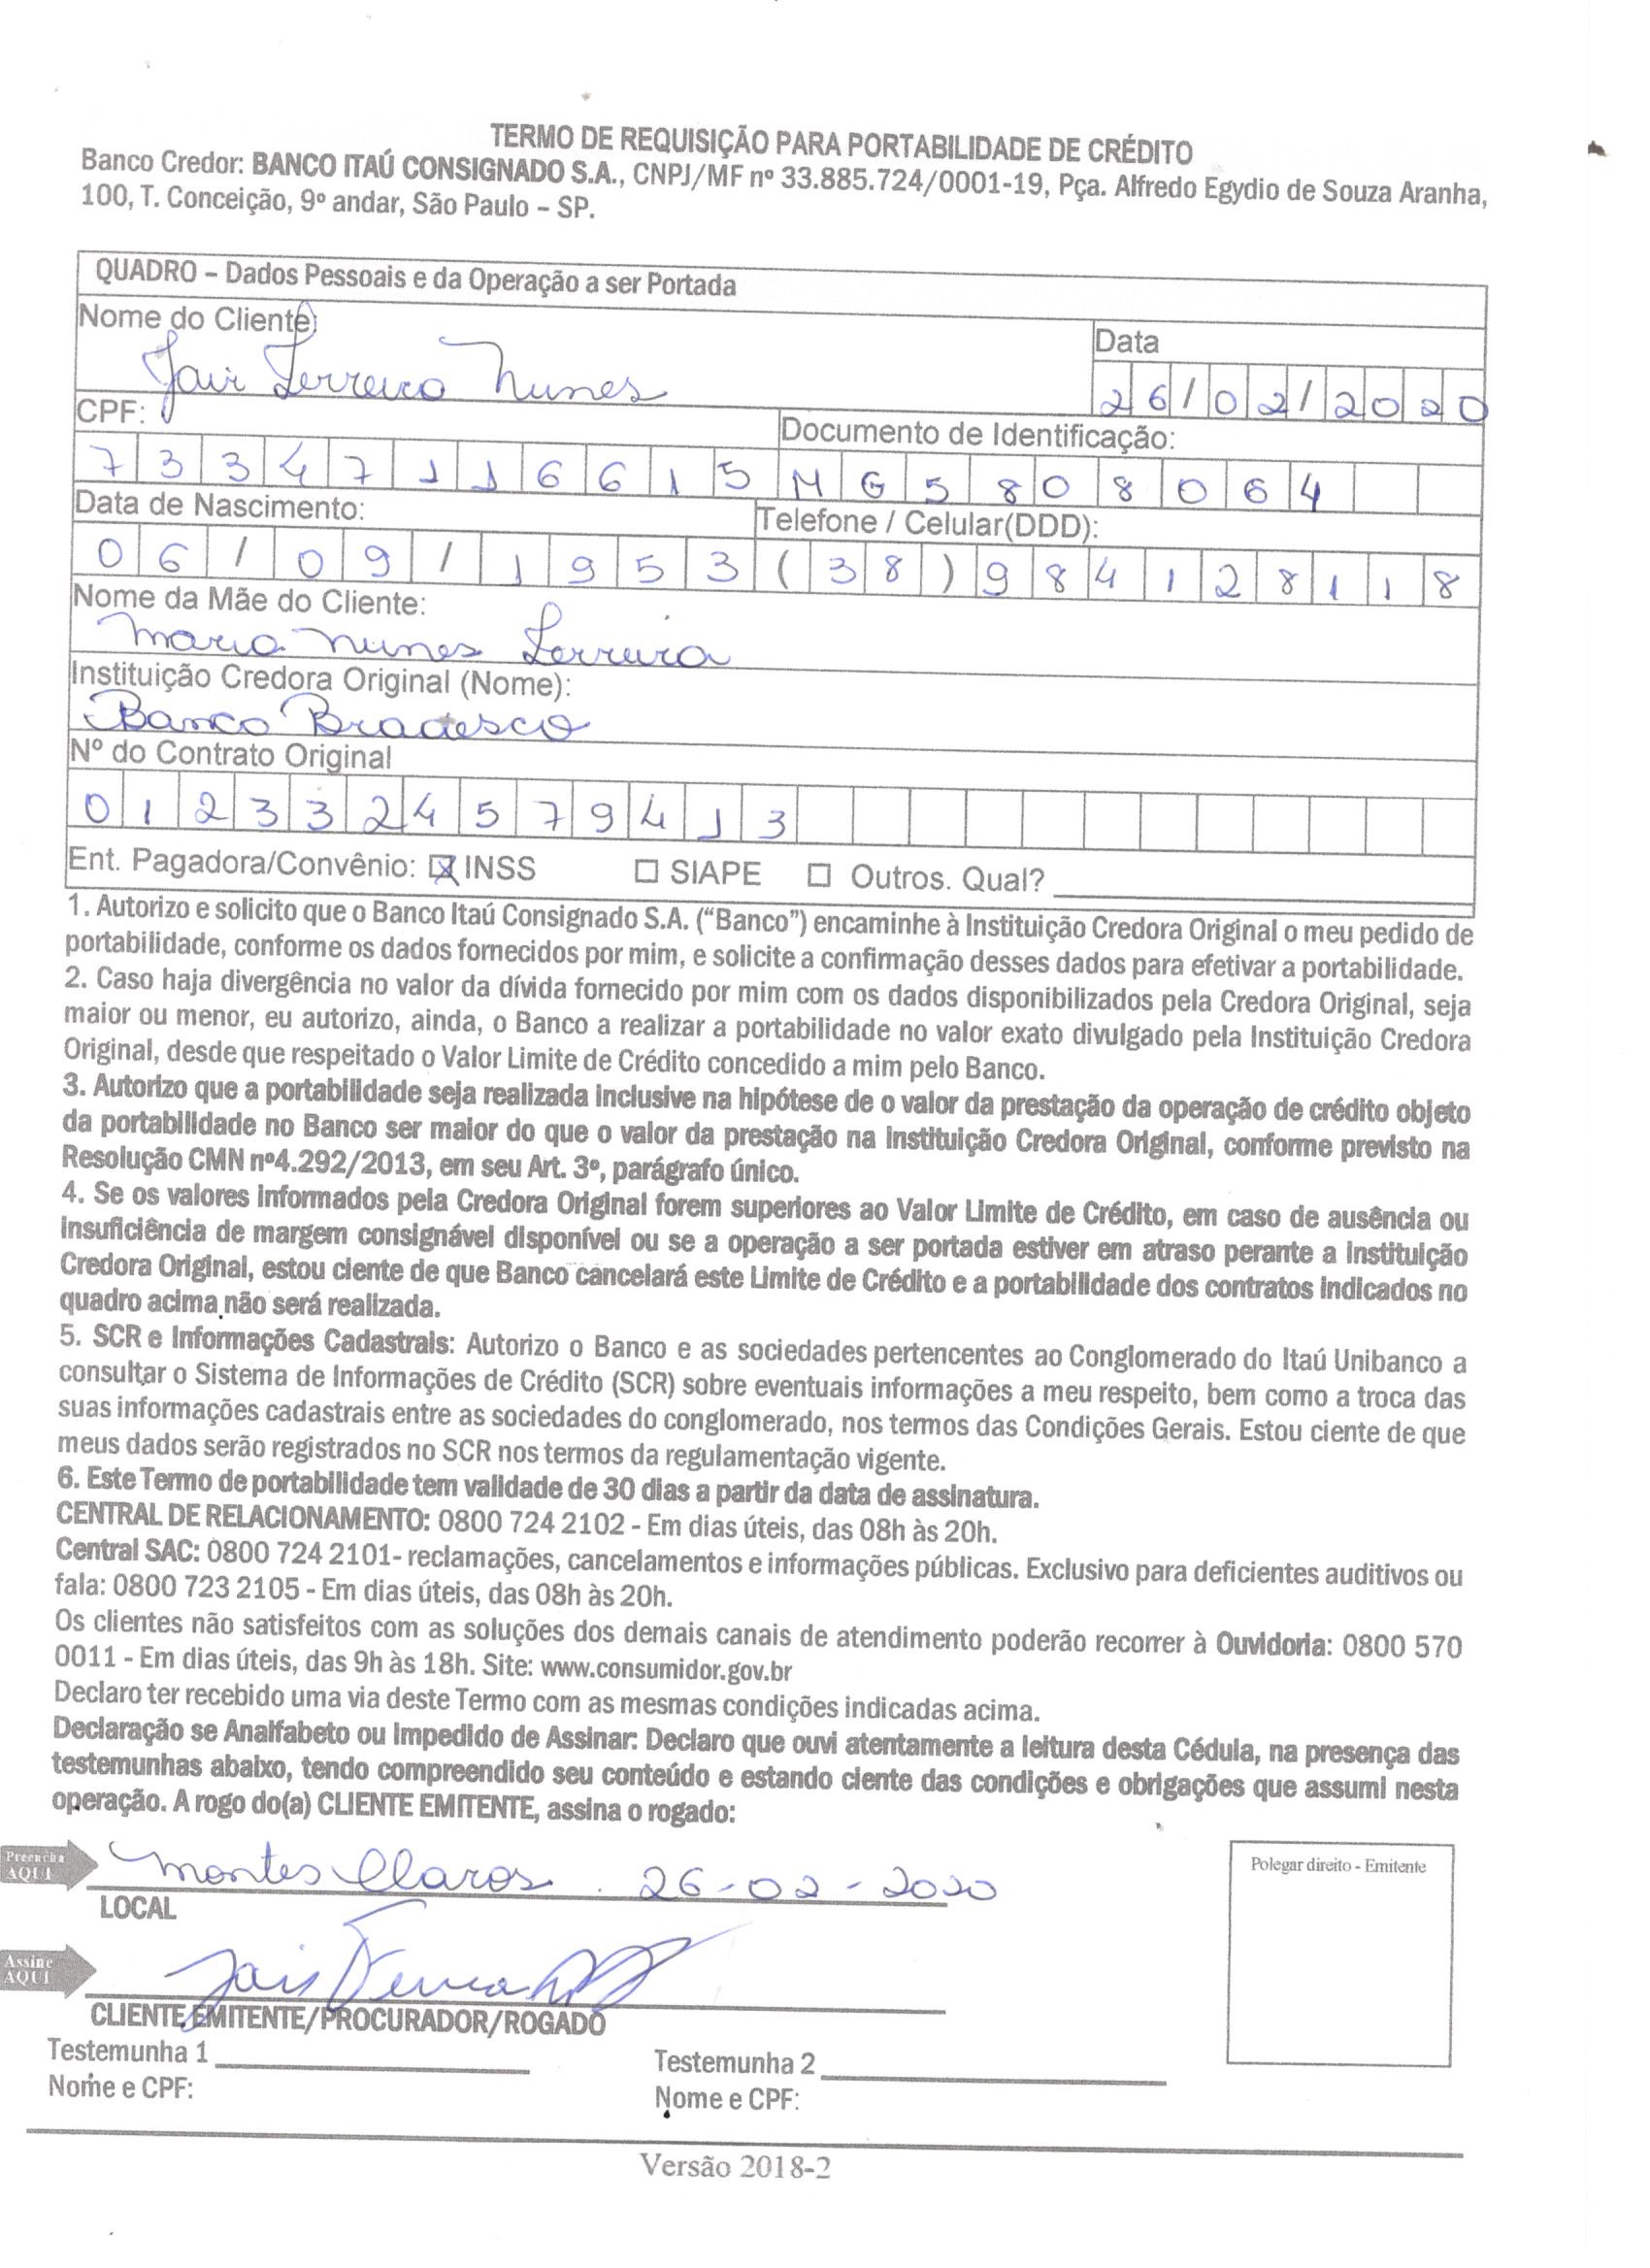 TERMO DE REQUISIÇÃO PARA PORTABILIDADE DE CRÉDITO
Banco Credor: BANCO ITAÚ CONSIGNADO S.A., CNPJ/MF nº 33.885.724/0001-19, Pça. Alfredo Egydio de Souza Aranha,
100, T. Conceição, 9º andar, São Paulo – SP.
QUADRO – Dados Pessoais e da Operação a ser Portada
Nome do Cliente:
Data
Jair Ferreira Nunes
26/02/2020
CPF:
Documento de Identificação:
73347116615
MG5808064
Data de Nascimento:
Telefone / Celular(DDD):
06/09/1953
(38)984128118
Nome da Mãe do Cliente:
Maria Nunes Ferreira
Instituição Credora Original (Nome):
Banco Bradesco
Nº do Contrato Original
0123324579413
Ent. Pagadora/Convênio: ☒ INSS ☐ SIAPE ☐ Outros. Qual?
1. Autorizo e solicito que o Banco Itaú Consignado S.A. (“Banco”) encaminhe à Instituição Credora Original o meu pedido de
portabilidade, conforme os dados fornecidos por mim, e solicite a confirmação desses dados para efetivar a portabilidade.
2. Caso haja divergência no valor da dívida fornecido por mim com os dados disponibilizados pela Credora Original, seja
maior ou menor, eu autorizo, ainda, o Banco a realizar a portabilidade no valor exato divulgado pela Instituição Credora
Original, desde que respeitado o Valor Limite de Crédito concedido a mim pelo Banco.
3. Autorizo que a portabilidade seja realizada inclusive na hipótese de o valor da prestação da operação de crédito objeto
da portabilidade no Banco ser maior do que o valor da prestação na Instituição Credora Original, conforme previsto na
Resolução CMN nº4.292/2013, em seu Art. 3º, parágrafo único.
4. Se os valores informados pela Credora Original forem superiores ao Valor Limite de Crédito, em caso de ausência ou
insuficiência de margem consignável disponível ou se a operação a ser portada estiver em atraso perante a Instituição
Credora Original, estou ciente de que Banco cancelará este Limite de Crédito e a portabilidade dos contratos indicados no
quadro acima não será realizada.
5. SCR e Informações Cadastrais: Autorizo o Banco e as sociedades pertencentes ao Conglomerado do Itaú Unibanco a
consultar o Sistema de Informações de Crédito (SCR) sobre eventuais informações a meu respeito, bem como a troca das
suas informações cadastrais entre as sociedades do conglomerado, nos termos das Condições Gerais. Estou ciente de que
meus dados serão registrados no SCR nos termos da regulamentação vigente.
6. Este Termo de portabilidade tem validade de 30 dias a partir da data de assinatura.
CENTRAL DE RELACIONAMENTO: 0800 724 2102 - Em dias úteis, das 08h às 20h.
Central SAC: 0800 724 2101- reclamações, cancelamentos e informações públicas. Exclusivo para deficientes auditivos ou
fala: 0800 723 2105 - Em dias úteis, das 08h às 20h.
Os clientes não satisfeitos com as soluções dos demais canais de atendimento poderão recorrer à Ouvidoria: 0800 570
0011 - Em dias úteis, das 9h às 18h. Site: www.consumidor.gov.br
Declaro ter recebido uma via deste Termo com as mesmas condições indicadas acima.
Declaração se Analfabeto ou Impedido de Assinar: Declaro que ouvi atentamente a leitura desta Cédula, na presença das
testemunhas abaixo, tendo compreendido seu conteúdo e estando ciente das condições e obrigações que assumi nesta
operação. A rogo do(a) CLIENTE EMITENTE, assina o rogado:
Preencha
AQUI
Montes Claros. 26-02-2020
Polegar direito - Emitente
LOCAL
Assine
AQUI
Jair
CLIENTE EMITENTE/PROCURADOR/ROGADO
Testemunha 1
Testemunha 2
Nome e CPF:
Nome e CPF:
Versão 2018-2